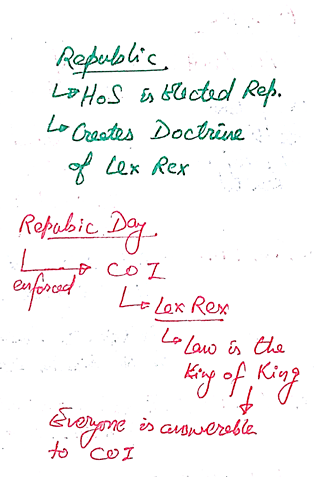 Republic
↳ HoS is Elected Rep.
↳ Creates Doctrine
of Lex Rex
Repubic Day
enforced → COI
↳ Lex Rex
↳ Law is the
King of King
Everyone is answerable
to COI